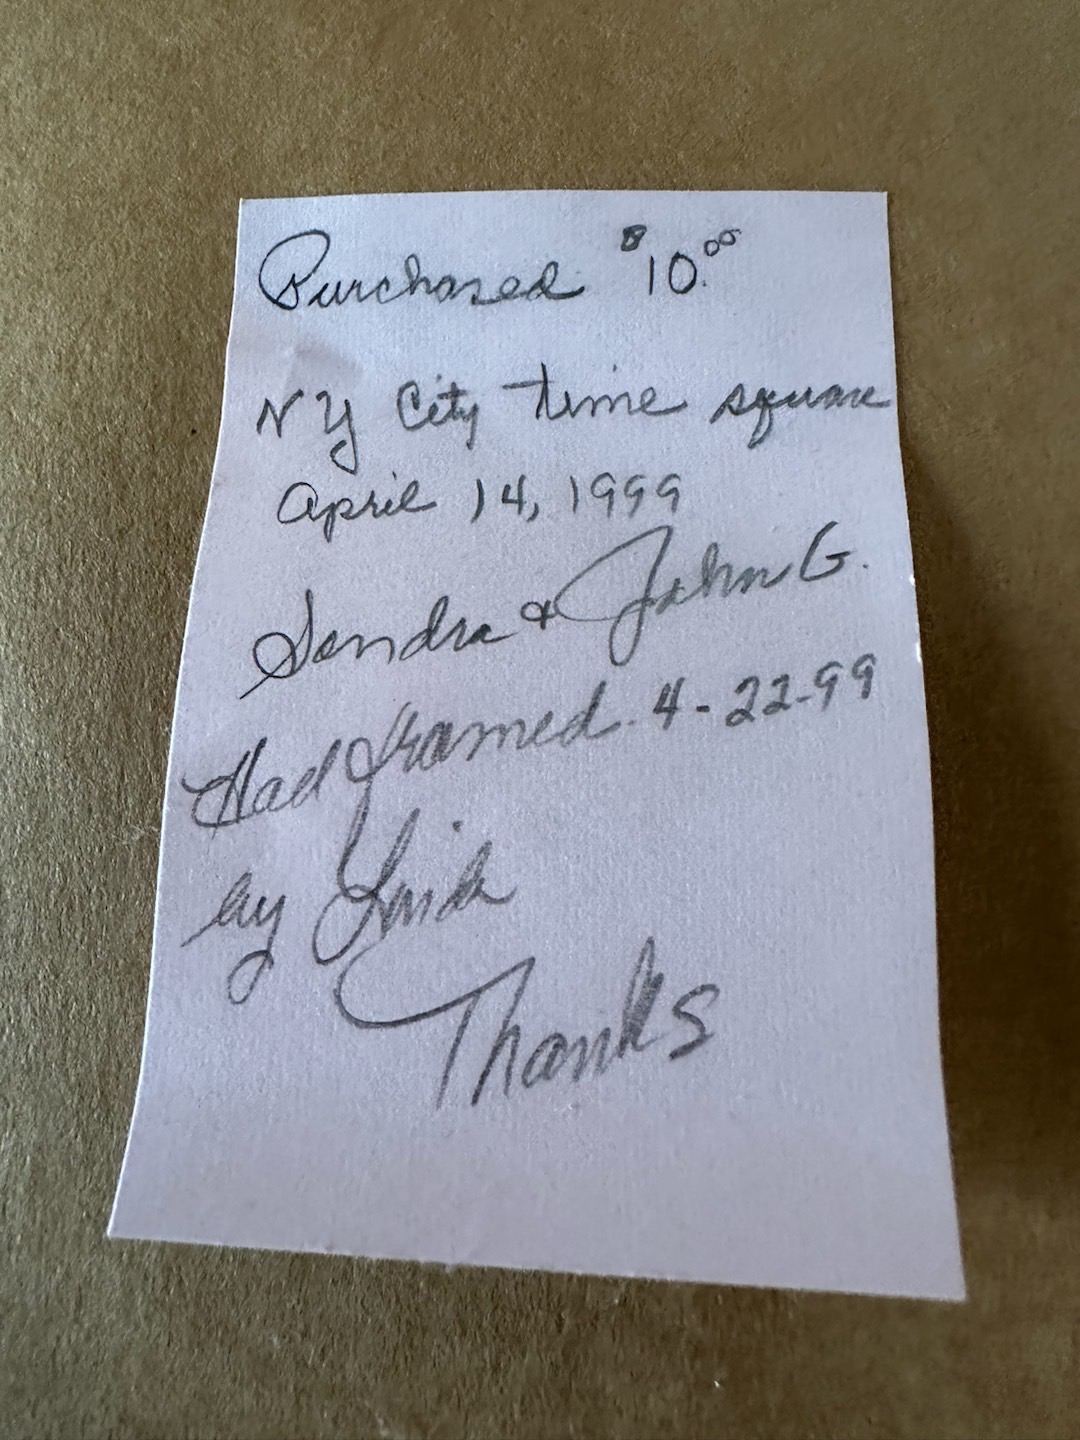 Purchased $10.00
NY City time square
April 14, 1999
Sandra & John G.
Had framed. 4-22-99
by
Thanks